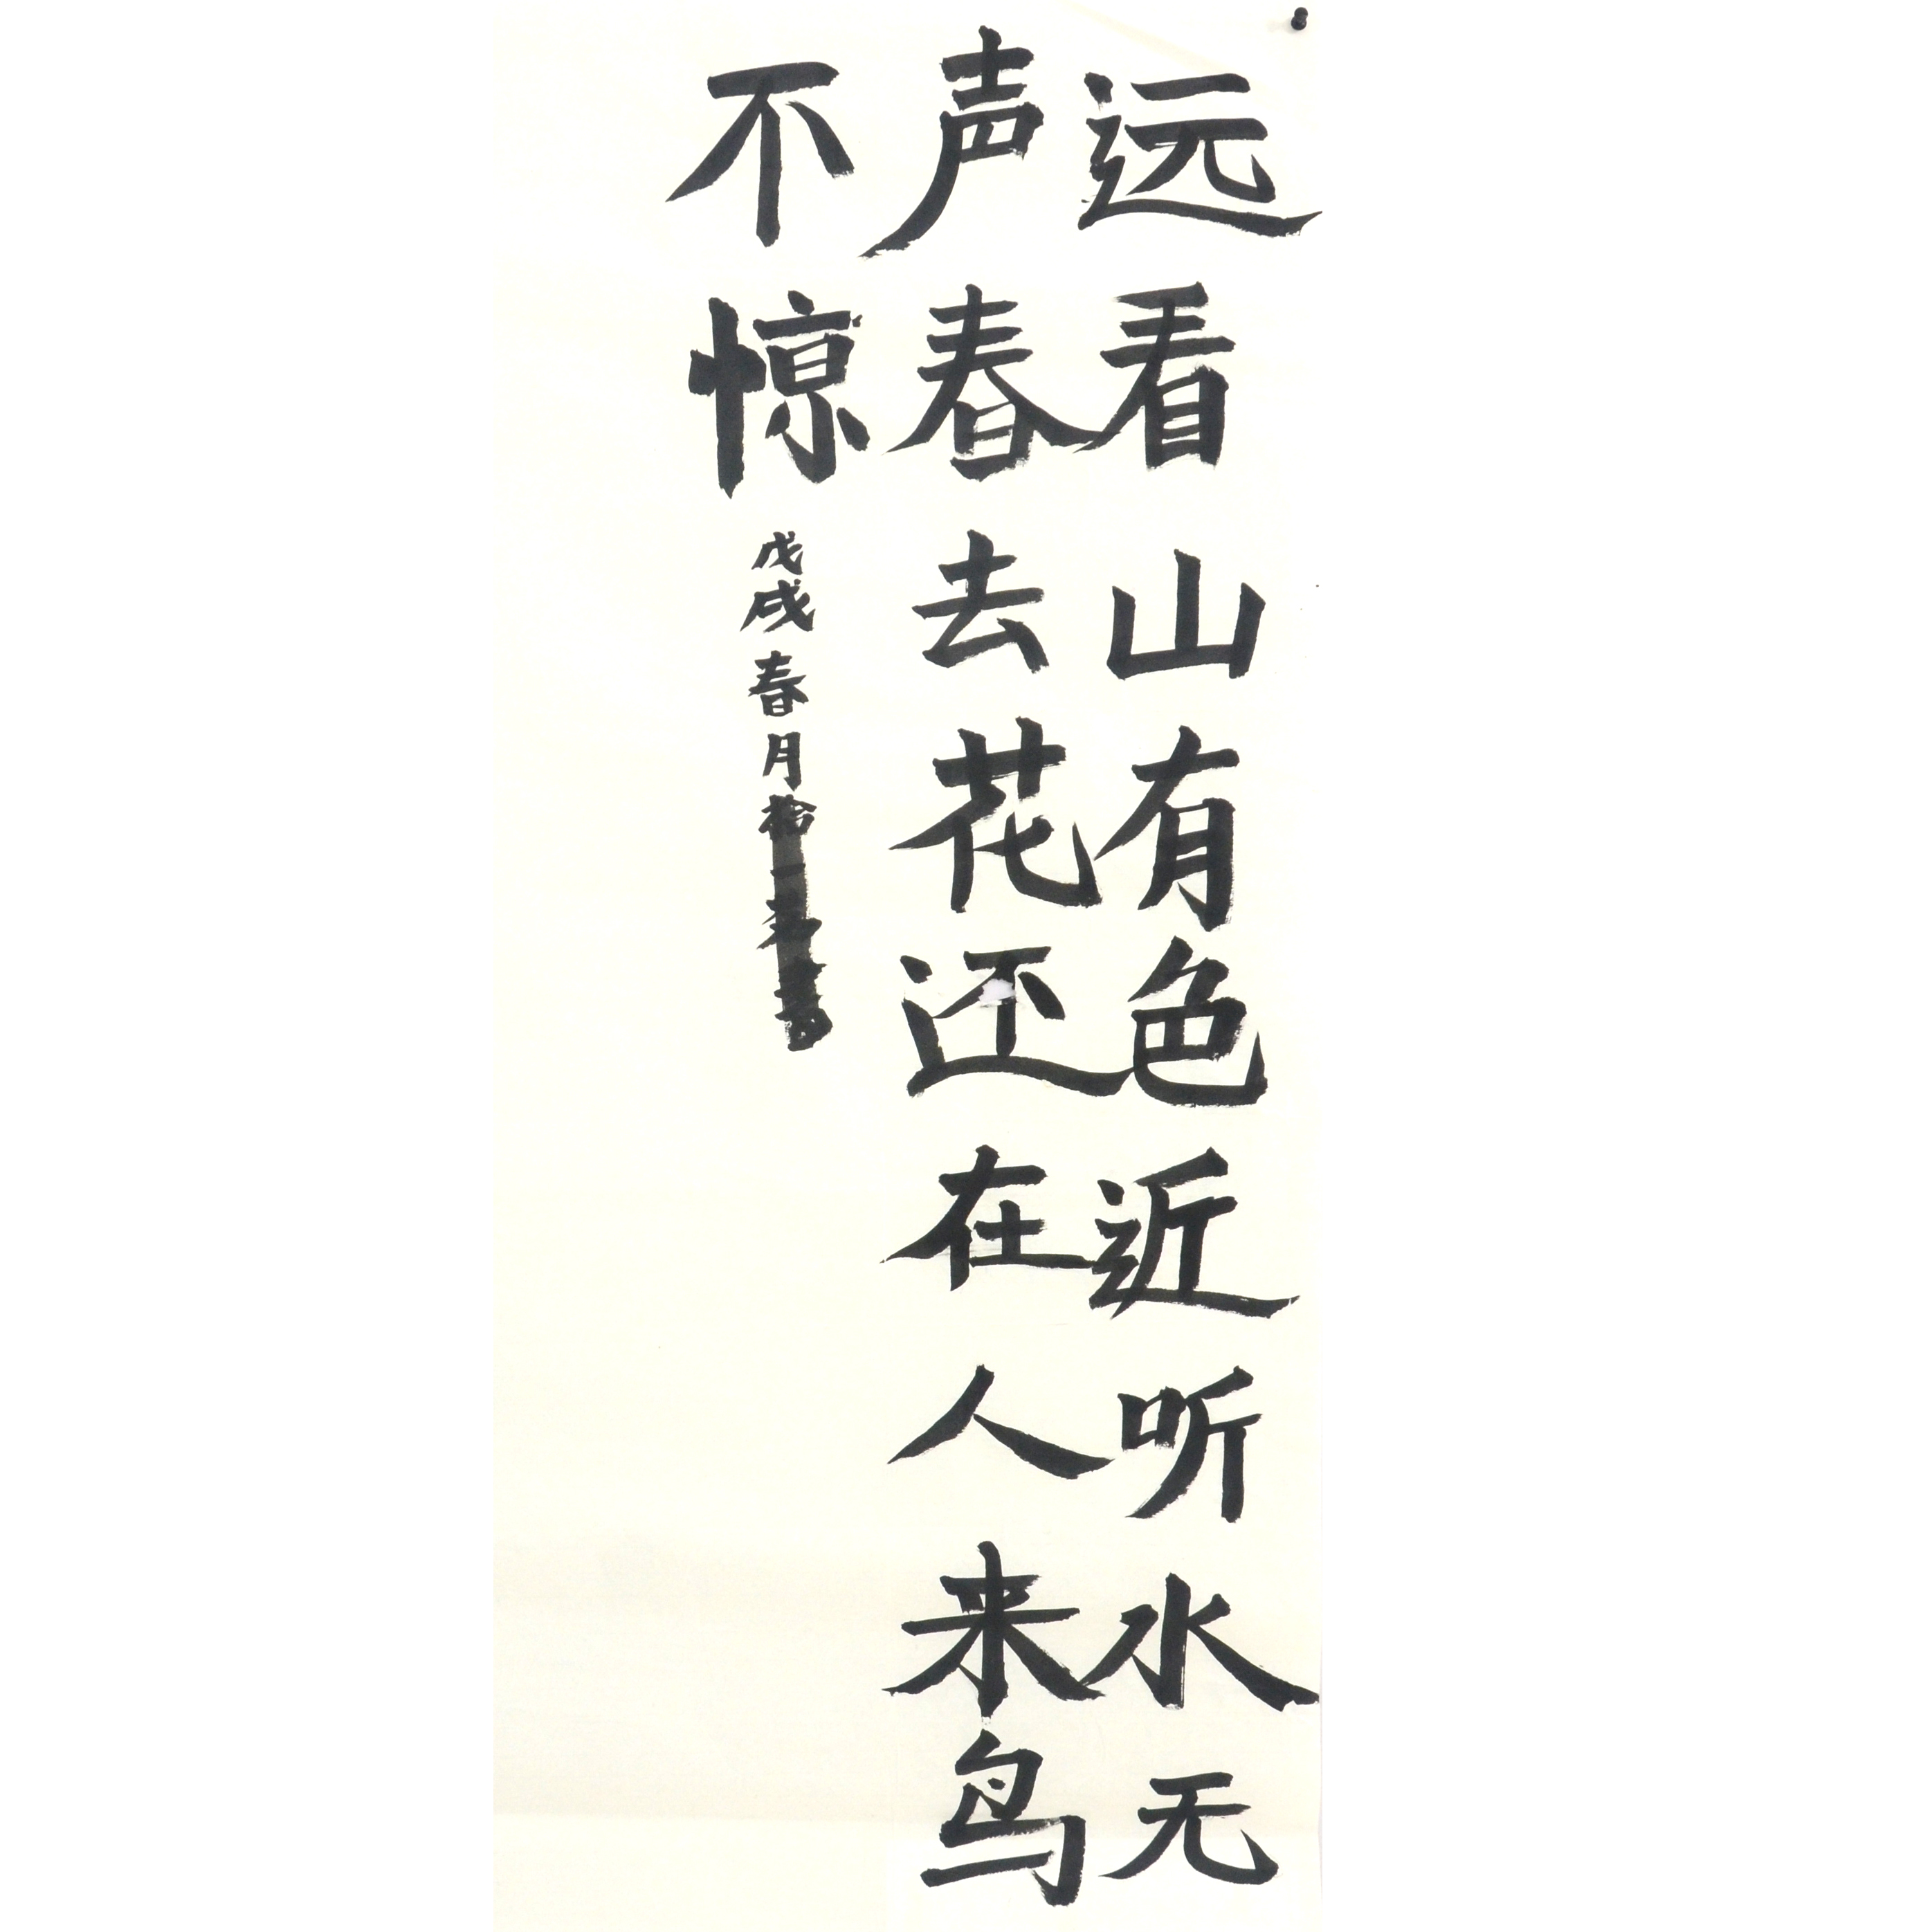 远看山有色近听水无
声春去花还在人来鸟
不惊
戊戌春月